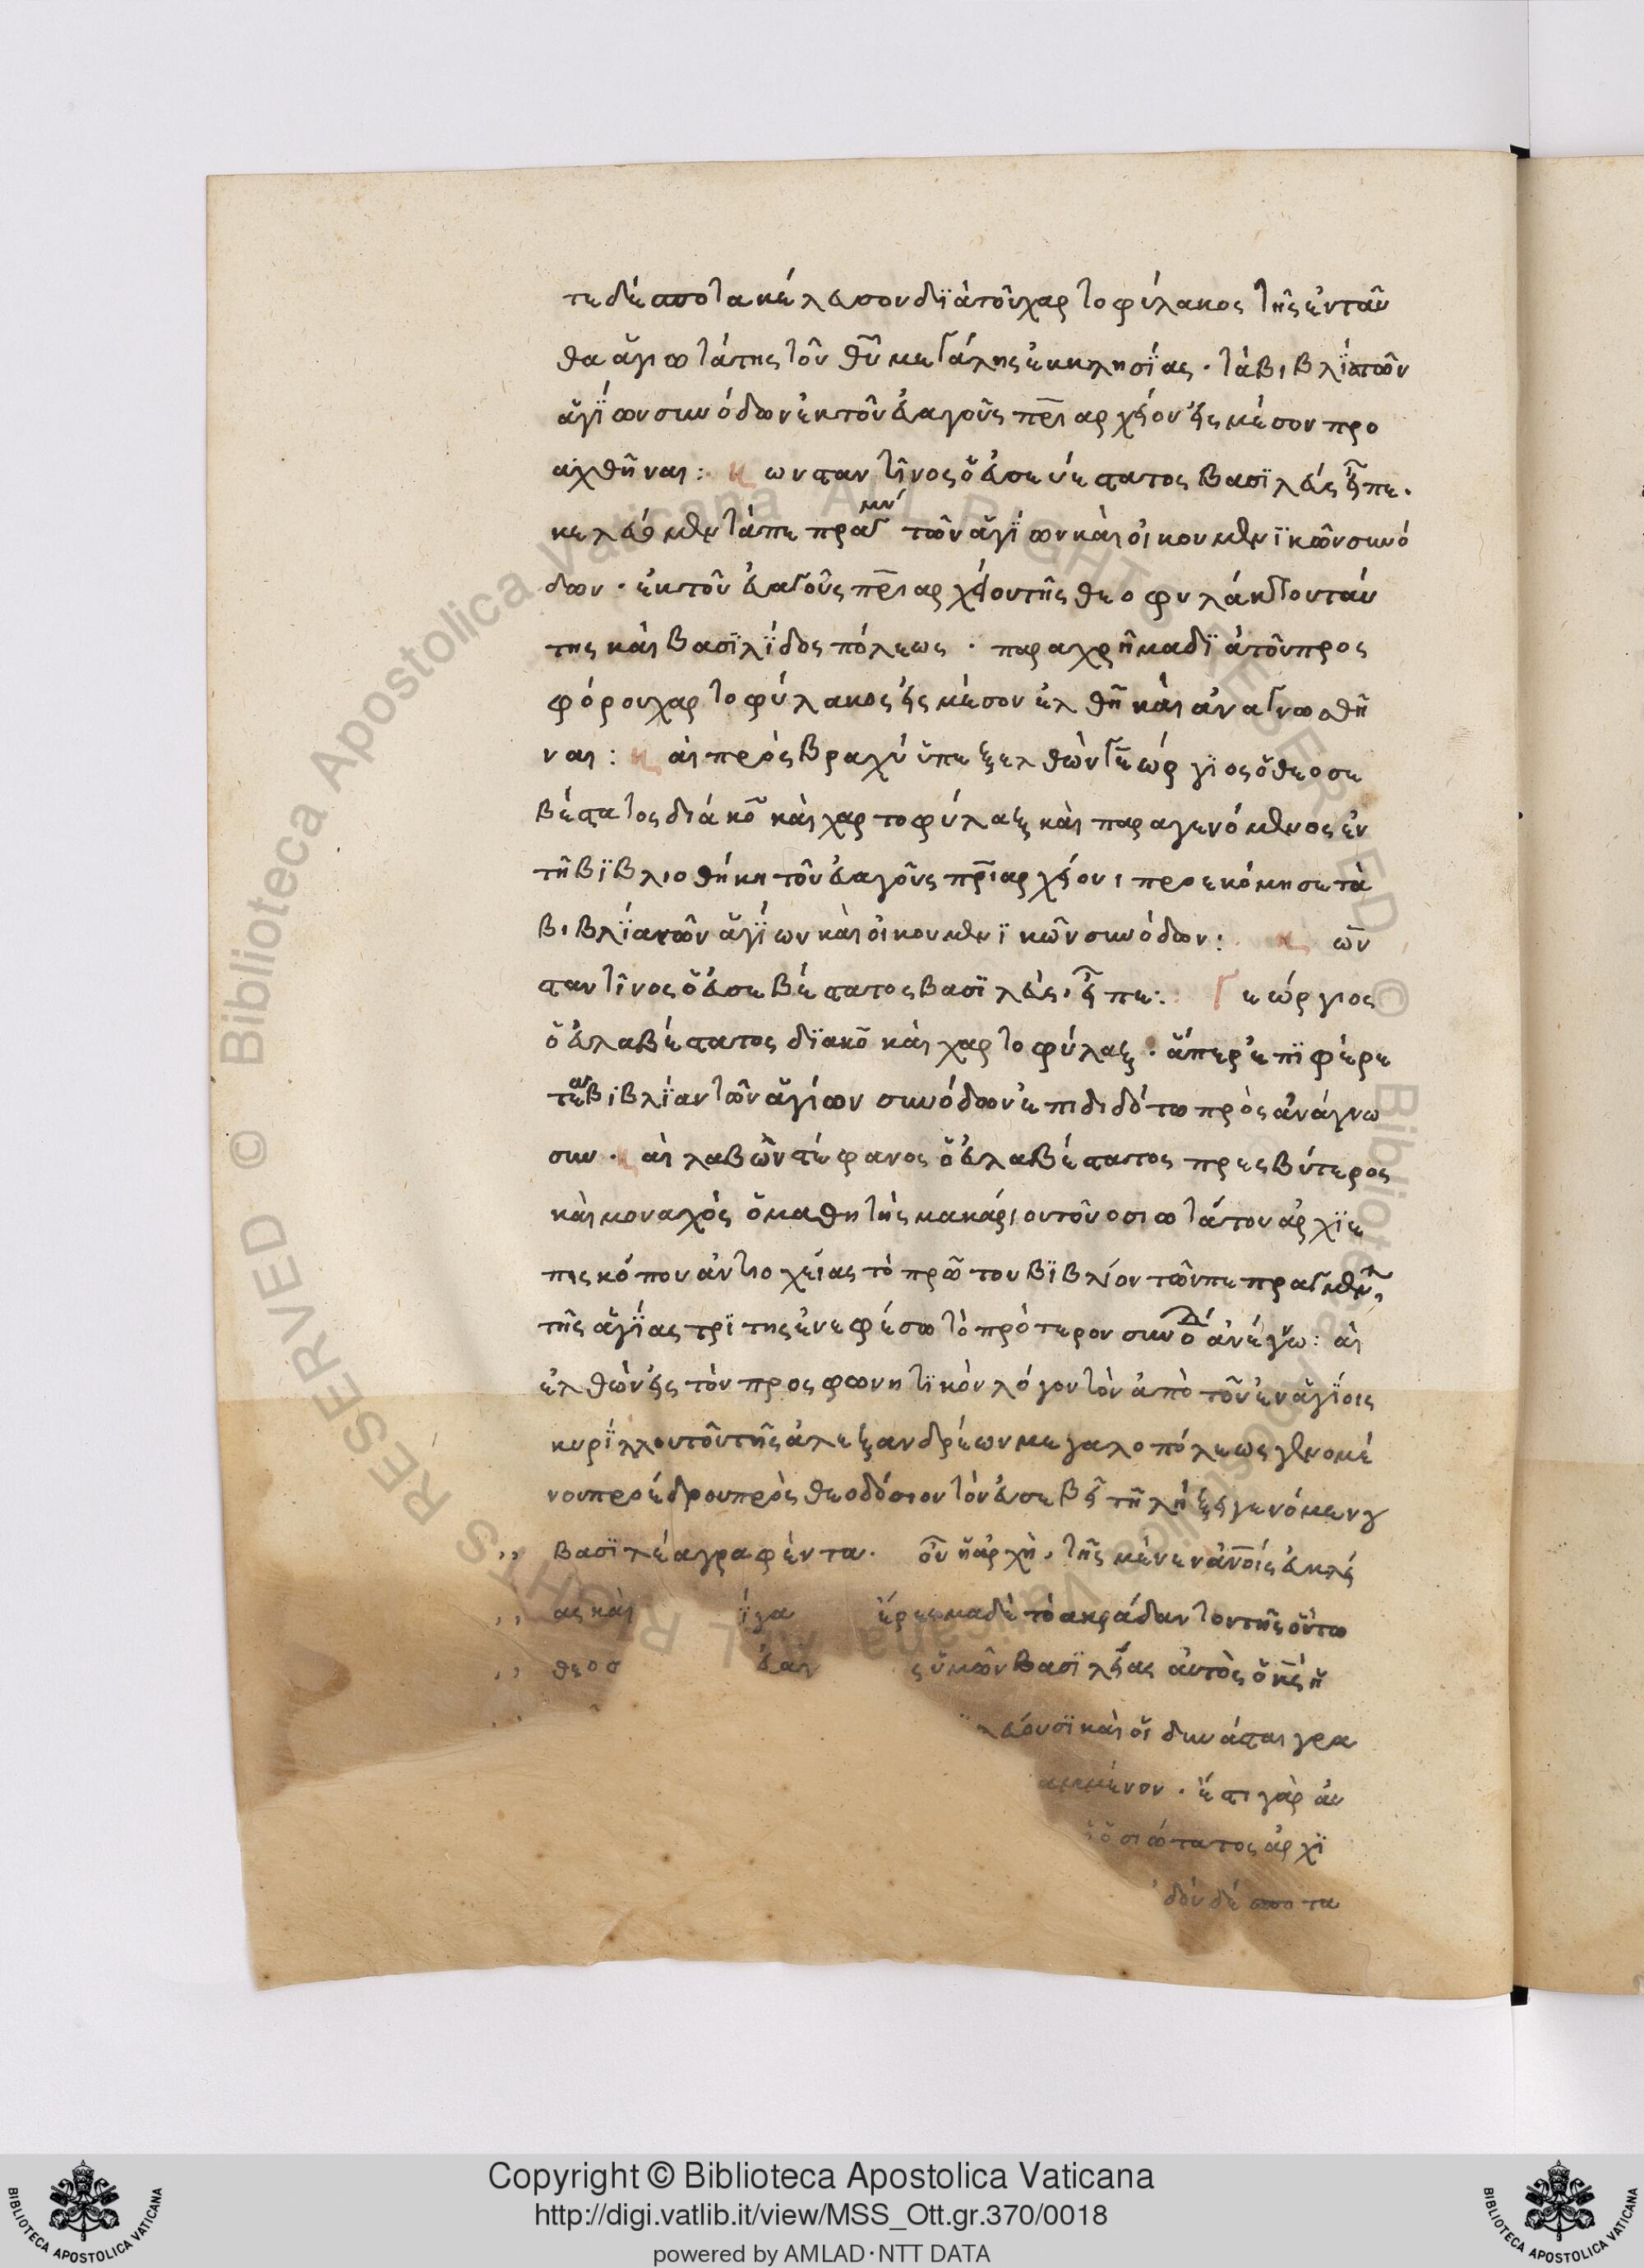 τε δέσποτα κέλευσον δϊὰ τοῦ χαρτοφύλακος τῆς ἐνταῦ
θα ἁγιωτάτης τοῦ θῦ μεγάλης ἐκκλησίας · τὰ βιβλΐα τῶν
ἁγΐων συνόδων ἐκ τοῦ εὐαγοῦς πριαρχείου εἰς μέσον προ
αχθῆναι : κωνσταντῖνος ὁ εὐσευέστατος βασϊλεὺς εἶπε ·
κελεύομεν τὰ πεπραγμέν τῶν ἁγΐων καὶ οἰκουμενϊκῶν συνό
δων · ἐκ τοῦ εὐαγοῦς πριαρχείου τῆς θεοφυλάκτου ταύ
της καὶ βασϊλΐδος πόλεως · παραχρῆμα δϊὰ τοῦ προς
φόρου χαρτοφύλακος εἰς μέσον ἐλθῆ καὶ ἀναγνωσθῆ
ναι : καὶ πρὸς βραχὺ ὑπεξελθὼν γεώργϊος ὁ θεοσε
βέστατος διάκο καὶ χαρτοφύλαξ καὶ παραγενόμενος ἐν
τῆ βϊβλιοθήκη τοῦ εὐαγοῦς πριαρχείου προεκόμησε τὰ
βιβλΐα τῶν ἁγΐων καὶ οἰκουμενϊκῶν συνόδων : κων
σταντῖνος ὁ εὐσεβέστατος βασϊλεὺς · εἶπε : γεώργιος
ὁ εὐλαβέστατος δϊακο καὶ χαρτοφύλαξ · ἅπερ ἐπϊφέρε
ται βϊβλΐα τῶν ἁγίων συνόδων ἐπιδιδότω πρὸς ἀνάγνω
σιν · καὶ λαβὼν στέφανος ὁ εὐλαβέστατος πρεσβύτερος
καὶ μοναχὸς ὁ μαθητὴς μακάριου τοῦ οσιωτάτου ἀρχϊε
πισκόπου ἀντιοχείας τὸ πρῶτον βϊβλίον τῶν πεπραγμέν
τῆς ἁγΐας τρϊτης ἐν ἐφέσω τὸ πρότερον συνόδ ἀνέγνω : αὶ
ἐλθὼν εἰς τὸν προςφωνητϊκὸν λόγον τὸν ἀπὸ τοῦ ἐν ἁγΐοις
κυρΐλλου τοῦ τῆς ἀλεξανδρέων μεγαλοπόλεως γενομέ
νου προέδρου πρὸς θεοδόσιον τὸν εὐσεβεῖ τῆ λήξει γενόμενον
,, βασϊλέα γραφέντα · οὗ ἡ ἀρχὴ · τῆς μὲν ἐν ἀνοις εὐκλεί
,, ας καὶ ϊγα ἔρεισμα δὲ τὸ ακράδαντον τῆς οὕτω
,, θεοσ εὐαι ς ὑμῶν βασϊλείας ἀυτὸς ὁ κς ἡ
,, ϊλεύουσϊ καὶ οἱ δυνάσται γρα
αμμένον · ἔστι γὰρ ἀυ
ὁσιώτατος ἀρχϊ
ιδοὺ δέσποτα